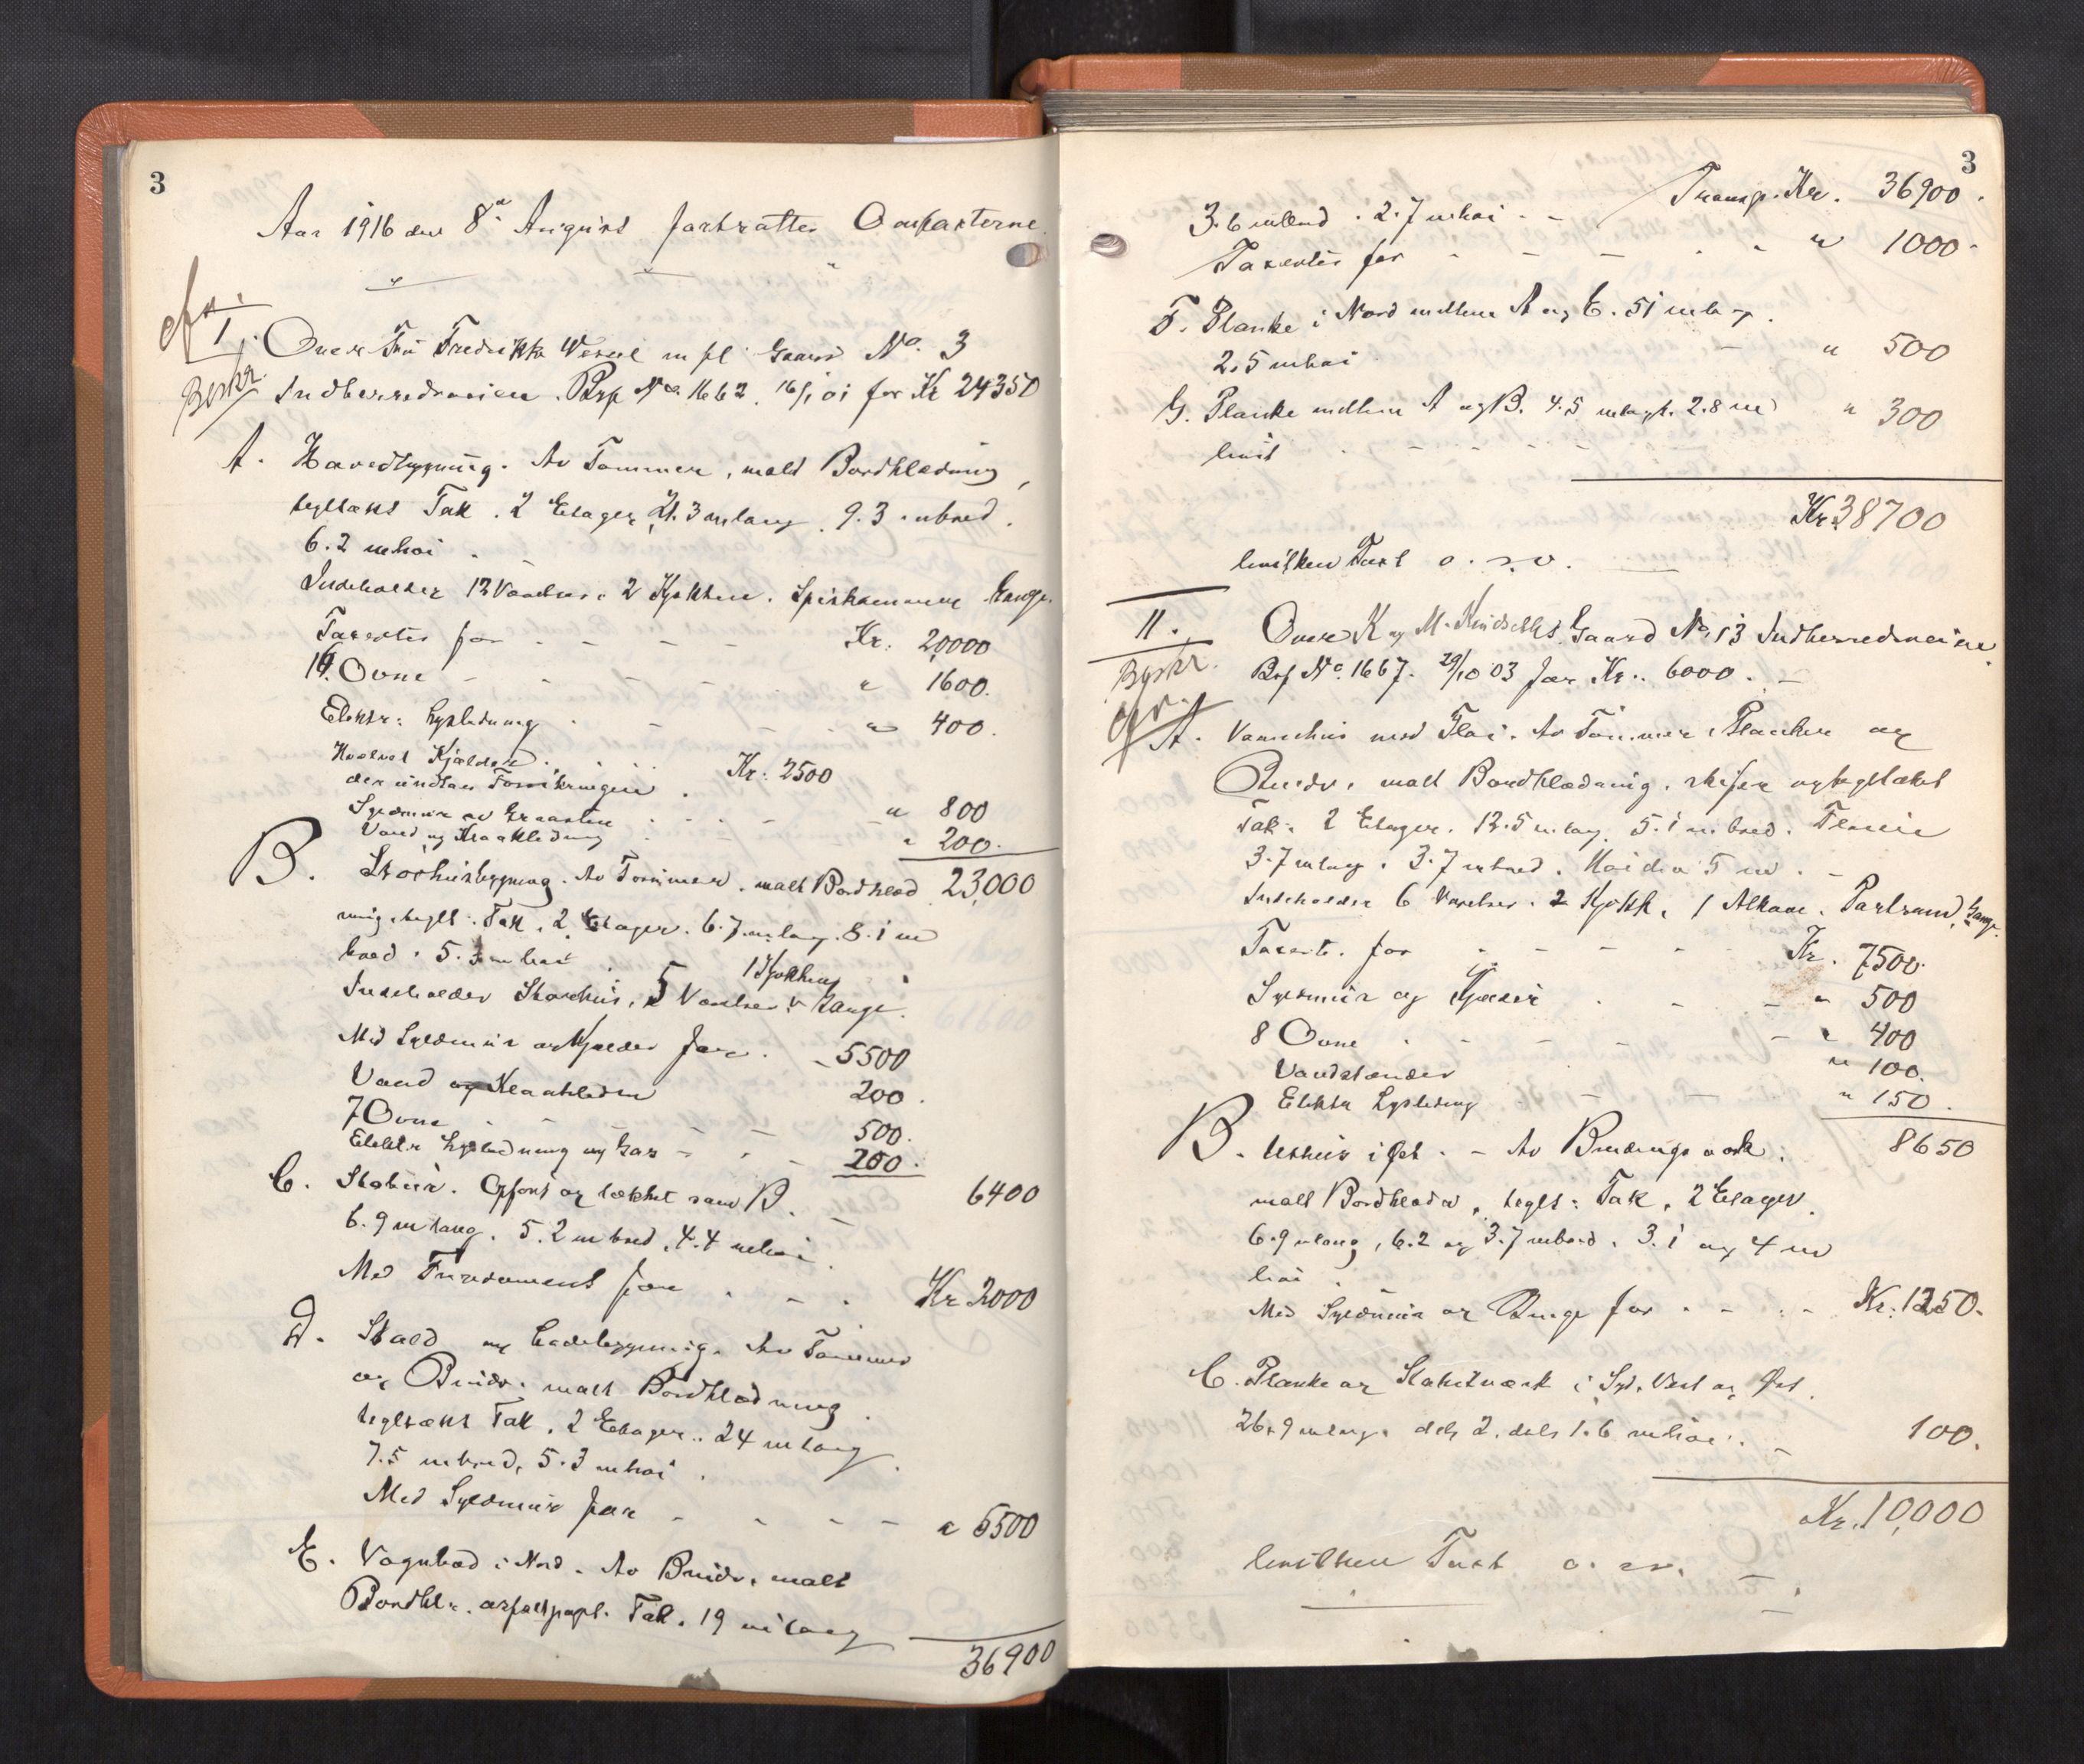 3
Aar 1916 den 8de August fortsattes Omtaxterne
I. Over Fru Fredrikke Wessel m fl Gaard No. 3
Byskr. Indherredsveien. Brp No. 1662. 16/1 01 for Kr 24350
A. Hovedbygning. Av Tømmer, malt Bordklædning,
teglhængt Tak. 2 Etager, 21.3 m lang. 9.3 m bred.
6.2 m høi.
Indeholder 12 Værelser, 2 Kjøkken. Spiskammere Gange.
Taxertes for - - - - Kr. 20000
16 Ovne - - - " 1600.
Elektr: Lysledning - - " 400.
Hvelvet Kjælder . . . Kr: 2500
der undtas Forsikringen .
Syldmur av Graasten . . . " 800
Vand og Kloakledning . . . " 200.
B. Vaaningsbygning. Av Tømmer. malt Bordklæd 23,000
ning, teglt. Tak. 2 Etager. 6.7 m lang. 8.1 m
bred. 5.3 m høi
1 Kjøkken
Indeholder 5 Værelser & Gange.
Med Syldmur og Kjælder for . - 5500
Vand og Kloakledn 200.
7 Ovne - - - 500.
Elektr Lysledning og Gas - - 200.
C. Stabur. Opført og tækket som B. 6400
6.9 m lang. 5.2 m bred, 4.4 m høi.
Med Fundament for . - . Kr 2000
D. Stald og Ladebygning. Av Tømmer
og Bindv. malt Bordklædning.
teglhængt Tak. 2 Etager. 24 m lang
7.5 m bred, 5.3 m høi.
Med Syldmur for - - - - " 5500
E. Vognbod i Nord. Av Bindv. malt
Bordkl. asfaltpapt. Tak. 19 m lang
36900
3
Transp. Kr. 36900.
3.6 m bred. 2.7 m høi - -
Taxertes for - - - - " 1000-
F. Planke i Nord mellem A og C. 51 m lang.
2.5 m høi - " 500
G. Planke mellem A og B. 4.5 m lang. 2.8 m " 300
høi - - - -
Kr. 38700
hvilken Taxt o. s. v.
II. Over K og M. Gaard No 13 Indherredsveien
Byskr. Brp No. 1667. 29/10 03 for Kr. 6000. -
A. Vaanehus med Fløi. Av Tømmer, Planker og
Bindv. malt Bordklædning, skifer og tegltækket
Tak. 2 Etager. 12.5 m lang. 5.1 m bred. Fløien
3.7 m lang. 3.7 m bred. Høiden 5 m. -
Indeholder 6 Værelser. 2 Kjøkk. 1 Alkove. Gange.
Taxert. for - - - - Kr. 7500.
Syldmur og Kjælder . - - " 500
8 Ovne . - - - - " 400
Vandstænder " 100.
Elektr Lysledning - - " 150.
B. Uthus i Øst. - Av Bindingsverk. 8650
malt Bordklædn, teglt: Tak, 2 Etager.
6.9 m lang, 6.2 og 3.7 m bred. 3.1 og 4 m
høi.
Med Syldmur og Binge for - - - Kr. 1250.
C. Planke og Stakitværk i Syd, Vest og Øst.
26.9 m lang. dels 2, dels 1.6 m høi. - 100.
Kr. 10,000
hvilken Taxt o. s. v.